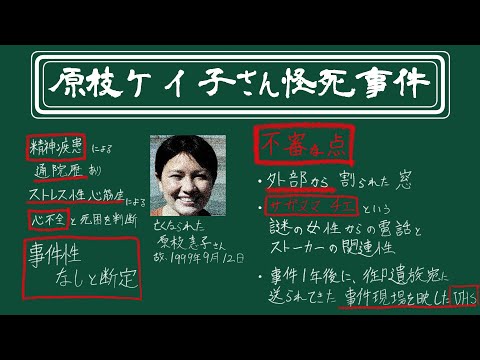 原枝ケイ子さん怪死事件
精神疾患による
通院歴あり
ストレス性心筋症による
心不全と死因を判断
事件性
なしと断定
亡くなられた
原枝恵子さん
故.1999年9月12日
不審な点
・外部から割られた窓
・サガママチエという
謎の女性からの電話と
ストーカーの関連性
・事件1年後に、御遺族宛に
送られてきた事件現場を映したVHS